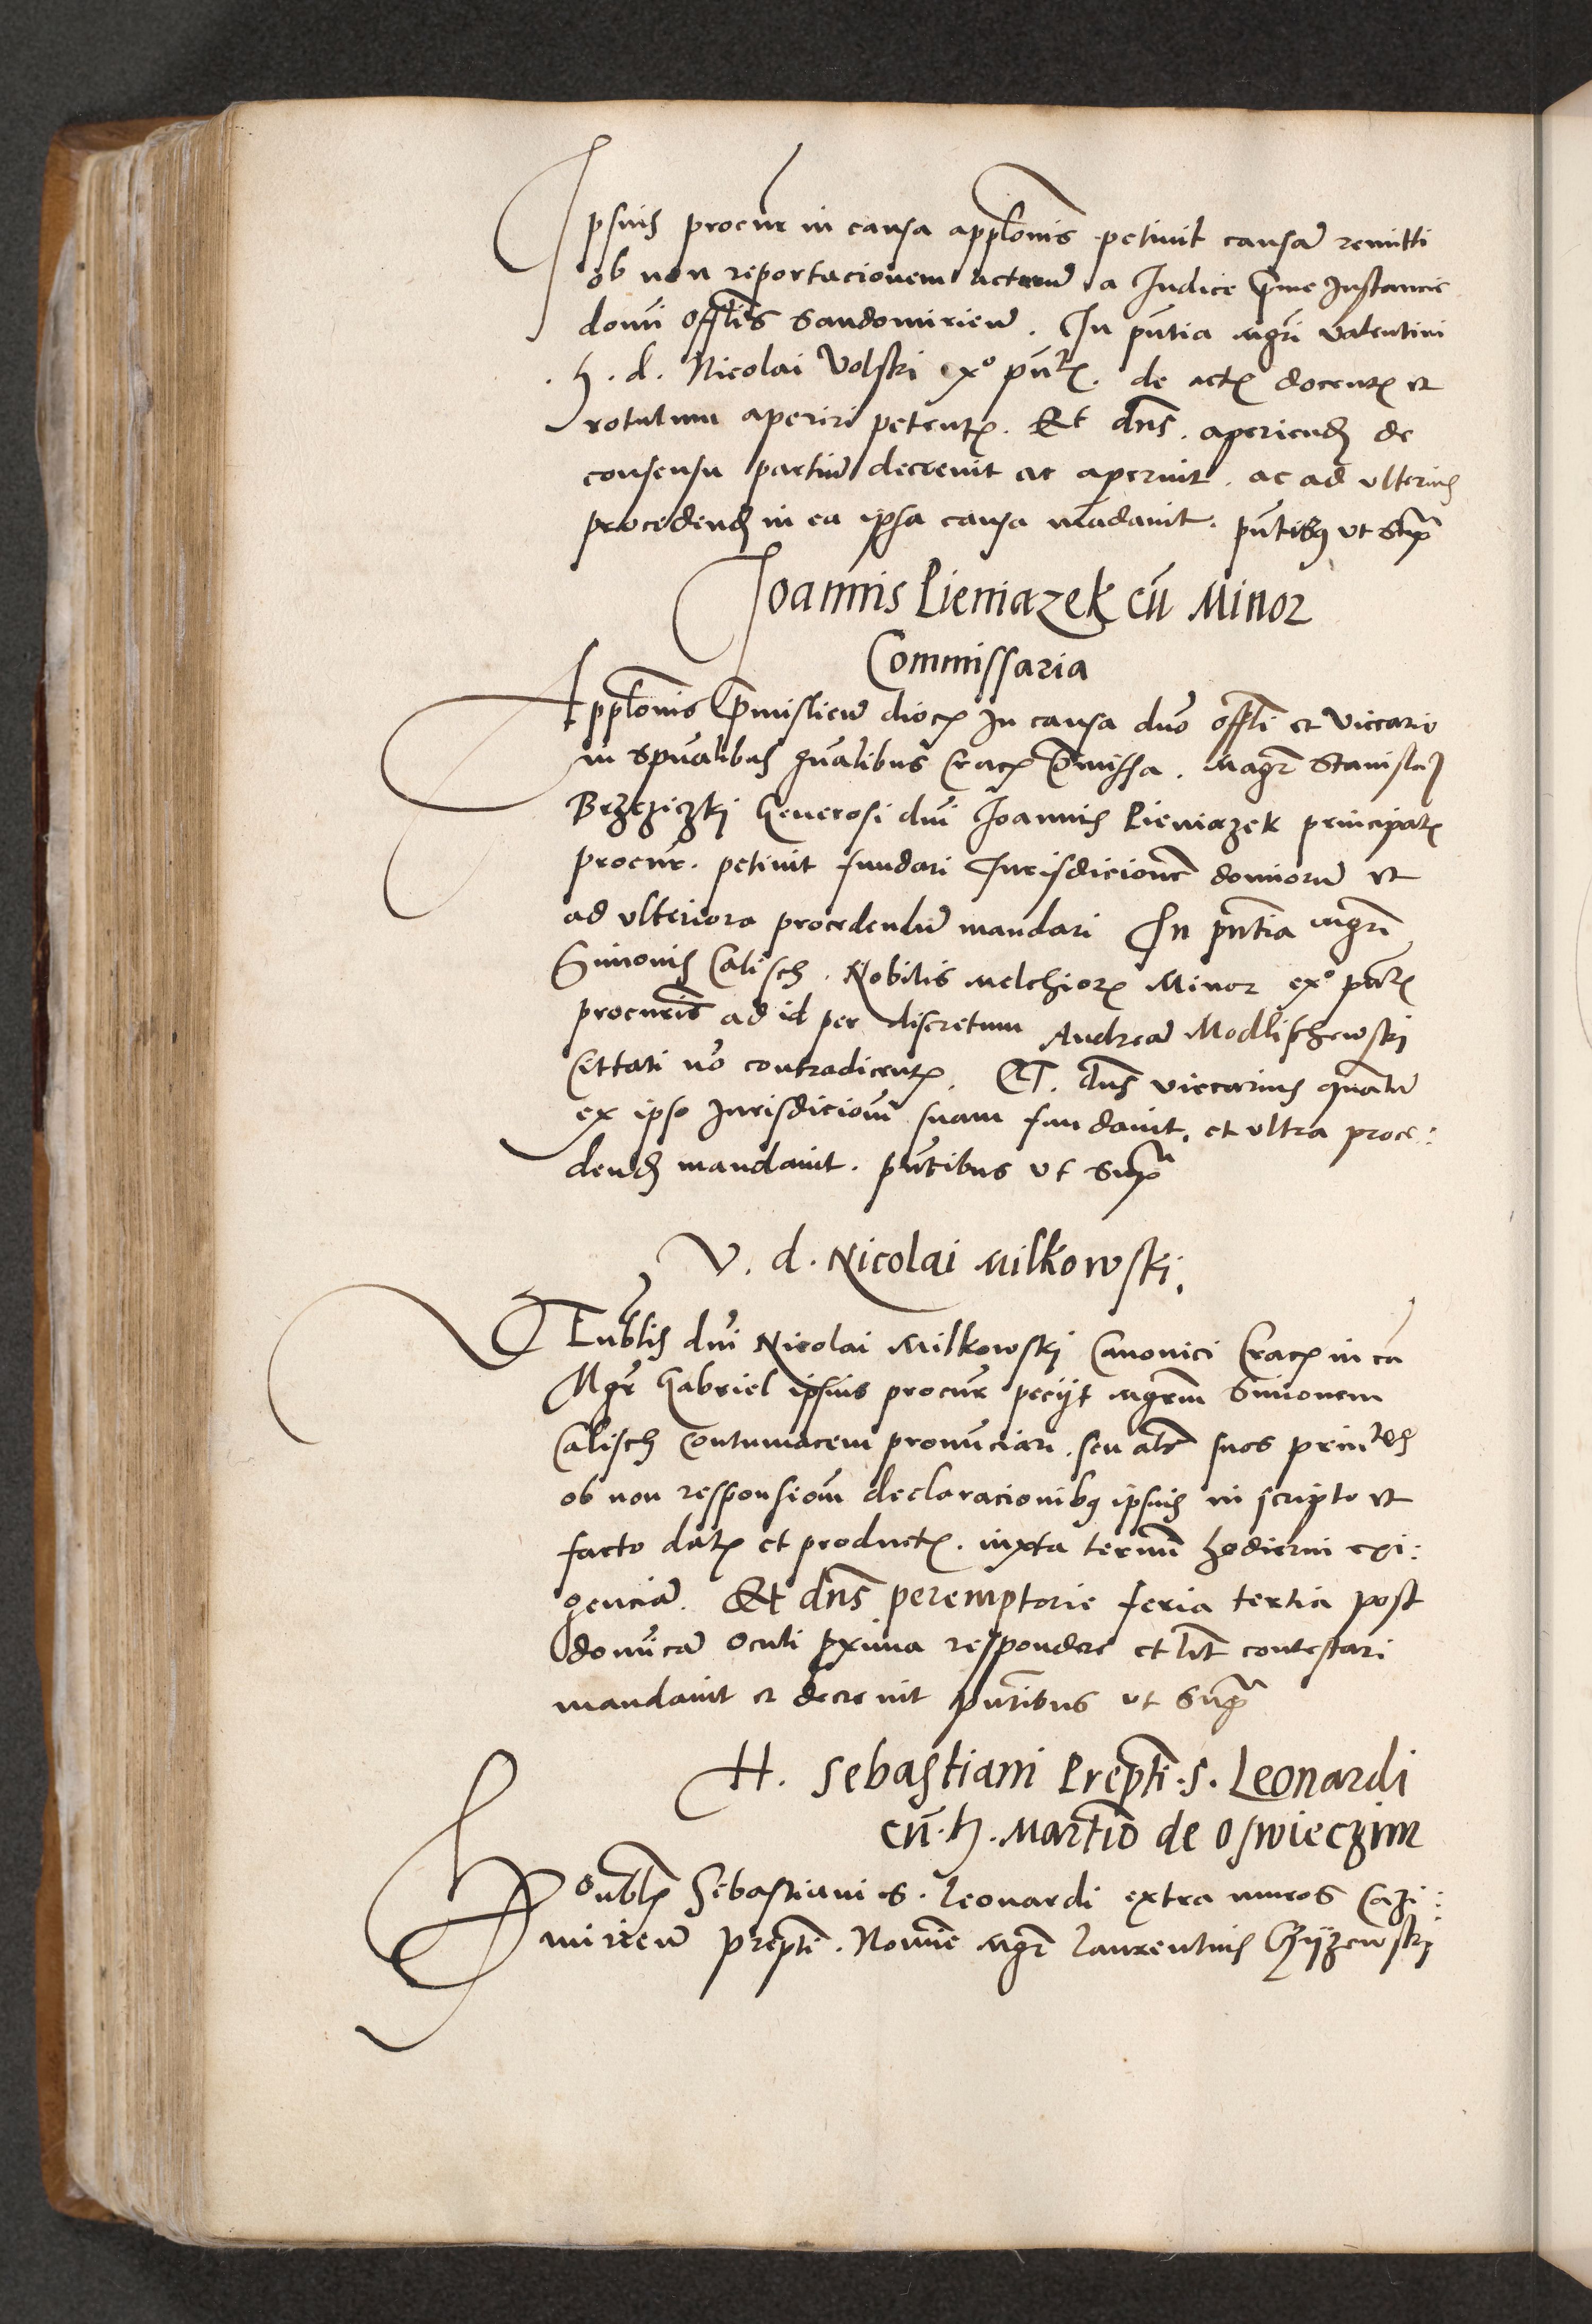 Ipsius procur in causa applonis petiuit causam remitti
ob non reportacionem actorum a Iudice prime Instancie
domi offlis Sandomirien. In pntia mgri Valentini
. h. d. Nicolai Volski exo pntis. de actis docentis et
rotulum aperiri petentis. Et dns. aperiend de
consensu partium decreuit ac aperuit. ac ad vlterius
procedend in ea ipsa causa mandauit. pntibus vt supra
Joannis Pieniazek cum Minor
Commissaria
Applonis Premislien dioc In causa dno offli et Viccario
in spualibus gnalibus Crac comissa. Magr Stanislaus
Brzeziczki Generosi dni Joannis Pieniazek principalis
procur. petiuit fundari Iurisdicionem dominorum et
ad vlteriora procedendum mandari In pntia mgri
Simonis Calisch. Nobilis Melchioris Minor exo pntis
procuris ad id per discretum Andream Modlischewski
Cittati no contradicentis. Et. dns viccarius quantum
ex ipso Iurisdiciom suam fundauit. et vltra proce:
dend mandauit. pntibus vt supra
V. d. Nicolai Milkowski.
Venblis dni Nicolai Milkowski Canonici Crac in ca
Mgr Gabriel ipsius procur peciit mgrm Simonem
Calisch Contumacem pronunciari. seu als suos prin
ob non responsiom declaracionibus ipsius in scripto et
facto datis et productis. iuxta termini hodierni exi:
genciam. Et dns peremptorie feria tertia post
domicam Oculi proxima respondere et lit contestari
mandauit et decreuit pntibus vt supra
H. Sebastiani Prepti. S. Leonardi
cum. h. Martino de Oswieczim
Honblis Sebastiani S. Leonardi extra muros Cazi:
mirien prepti. Nomine mgr Laurentius Chyzewski